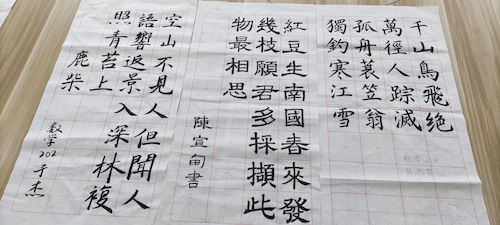 千山鳥飛绝
萬徑人踪滅
孤舟蓑笠翁
獨釣寒江雪
紅豆生南國春來發
幾枝願君多採擷此
物最相思
陳宣甸書
空山不見人但聞人
語響返景入深林複
照青苔上
鹿柴
数学202于杰